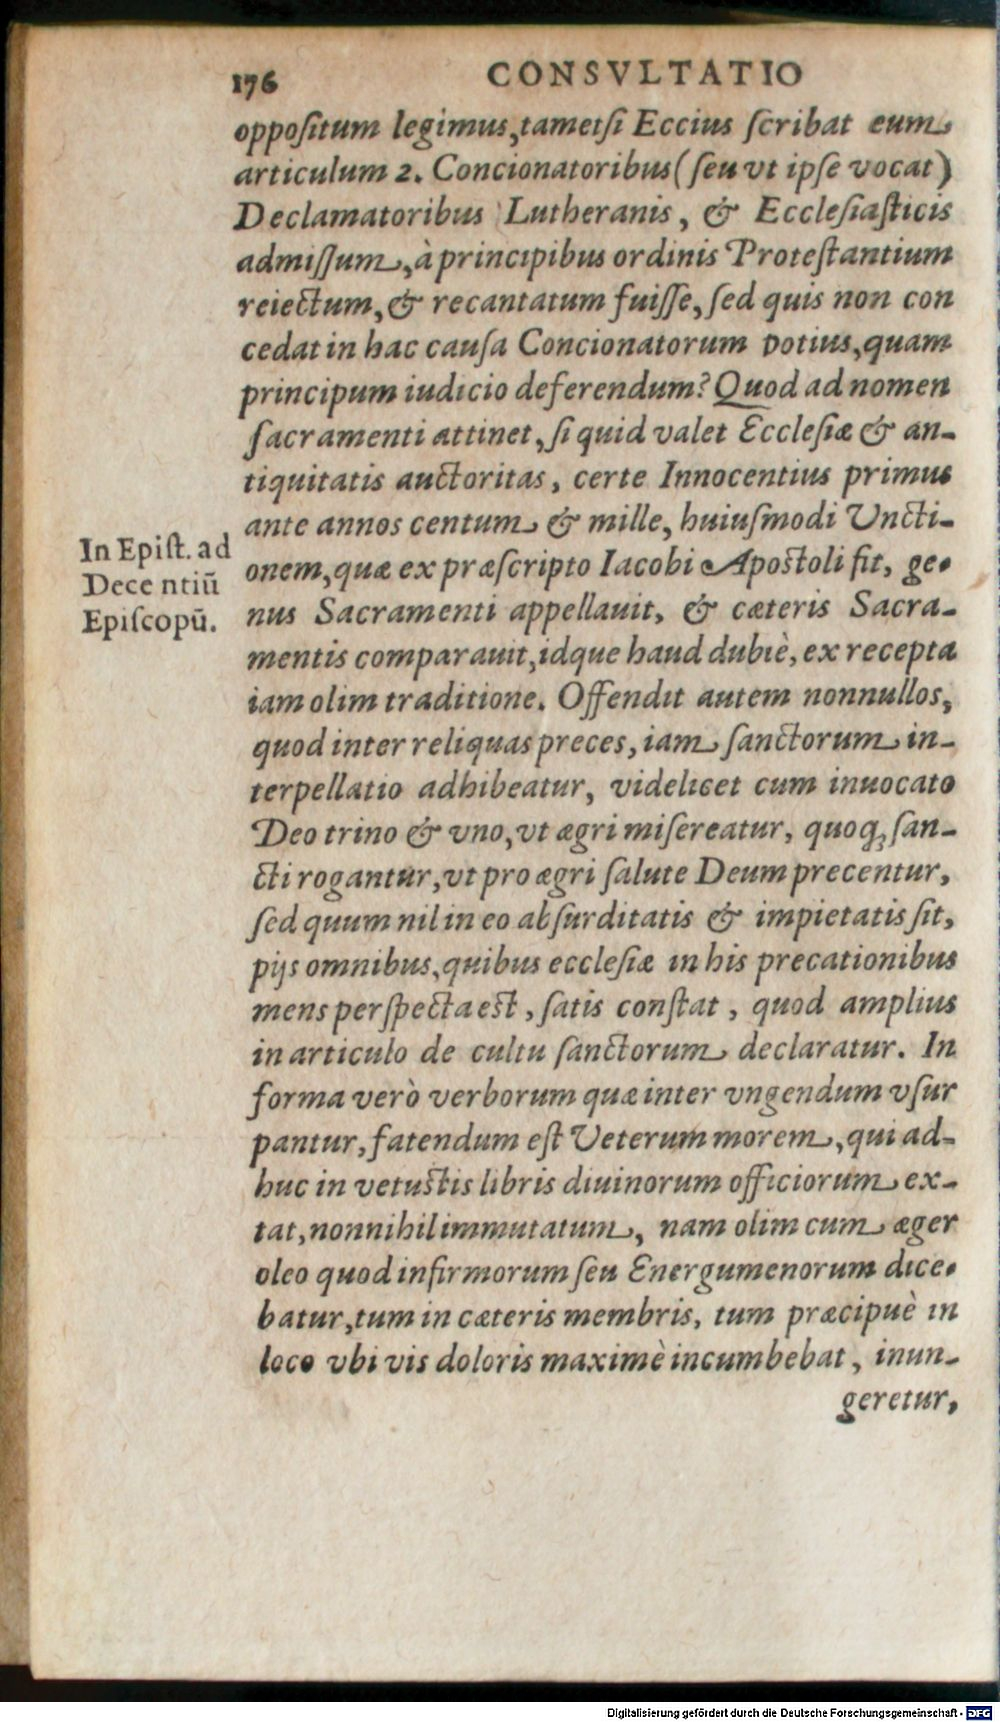 176 CONSVLTATIO
oppoſitum legimus, tametſi Eccius ſcribat eum
articulum 2. Concionatoribus (ſeu vt ipſe vocat)
Declamatoribus Lutheranis, & Eccleſiaſticis
admiſſum, à principibus ordinis Proteſtantium
reiectum, & recantatum fuiſſe, ſed quis non con
cedat in hac cauſa Concionatorum potius, quam
principum iudicio deferendum? Quod ad nomen
ſacramenti attinet, ſi quid valet Eccleſiæ & an-
tiquitatis auctoritas, certe Innocentius primus
ante annos centum & mille, huiuſmodi Vncti-
onem, quæ ex præſcripto Iacobi Apoſtoli fit, ge-
nus Sacramenti appellauit, & cæteris Sacra-
mentis comparauit, idque haud dubiè, ex recepta
iam olim traditione. Offendit autem nonnullos,
quod inter reliquas preces, iam ſanctorum in-
terpellatio adhibeatur, videlicet cum inuocato
Deo trino & vno, vt ægri miſereatur, quoq; ſan-
cti rogantur, vt pro ægri ſalute Deum precentur,
ſed quum nil in eo abſurditatis & impietatis ſit,
pijs omnibus, quibus eccleſiæ in his precationibus
mens perſpecta eſt, ſatis conſtat, quod amplius
in articulo de cultu ſanctorum declaratur. In
forma verò verborum quæ inter vngendum vſur
pantur, fatendum eſt Veterum morem, qui ad-
huc in vetuſtis libris diuinorum officiorum ex-
tat, nonnihil immutatum, nam olim cum æger
oleo quod infirmorum ſeu Energumenorum dice-
batur, tum in cæteris membris, tum præcipuè in
loco vbi vis doloris maximè incumbebat, inun-
geretur,
In Epiſt. ad
Dece ntiū
Epiſcopū.
Digitalisierung gefördert durch die Deutsche Forschungsgemeinschaft - DFG